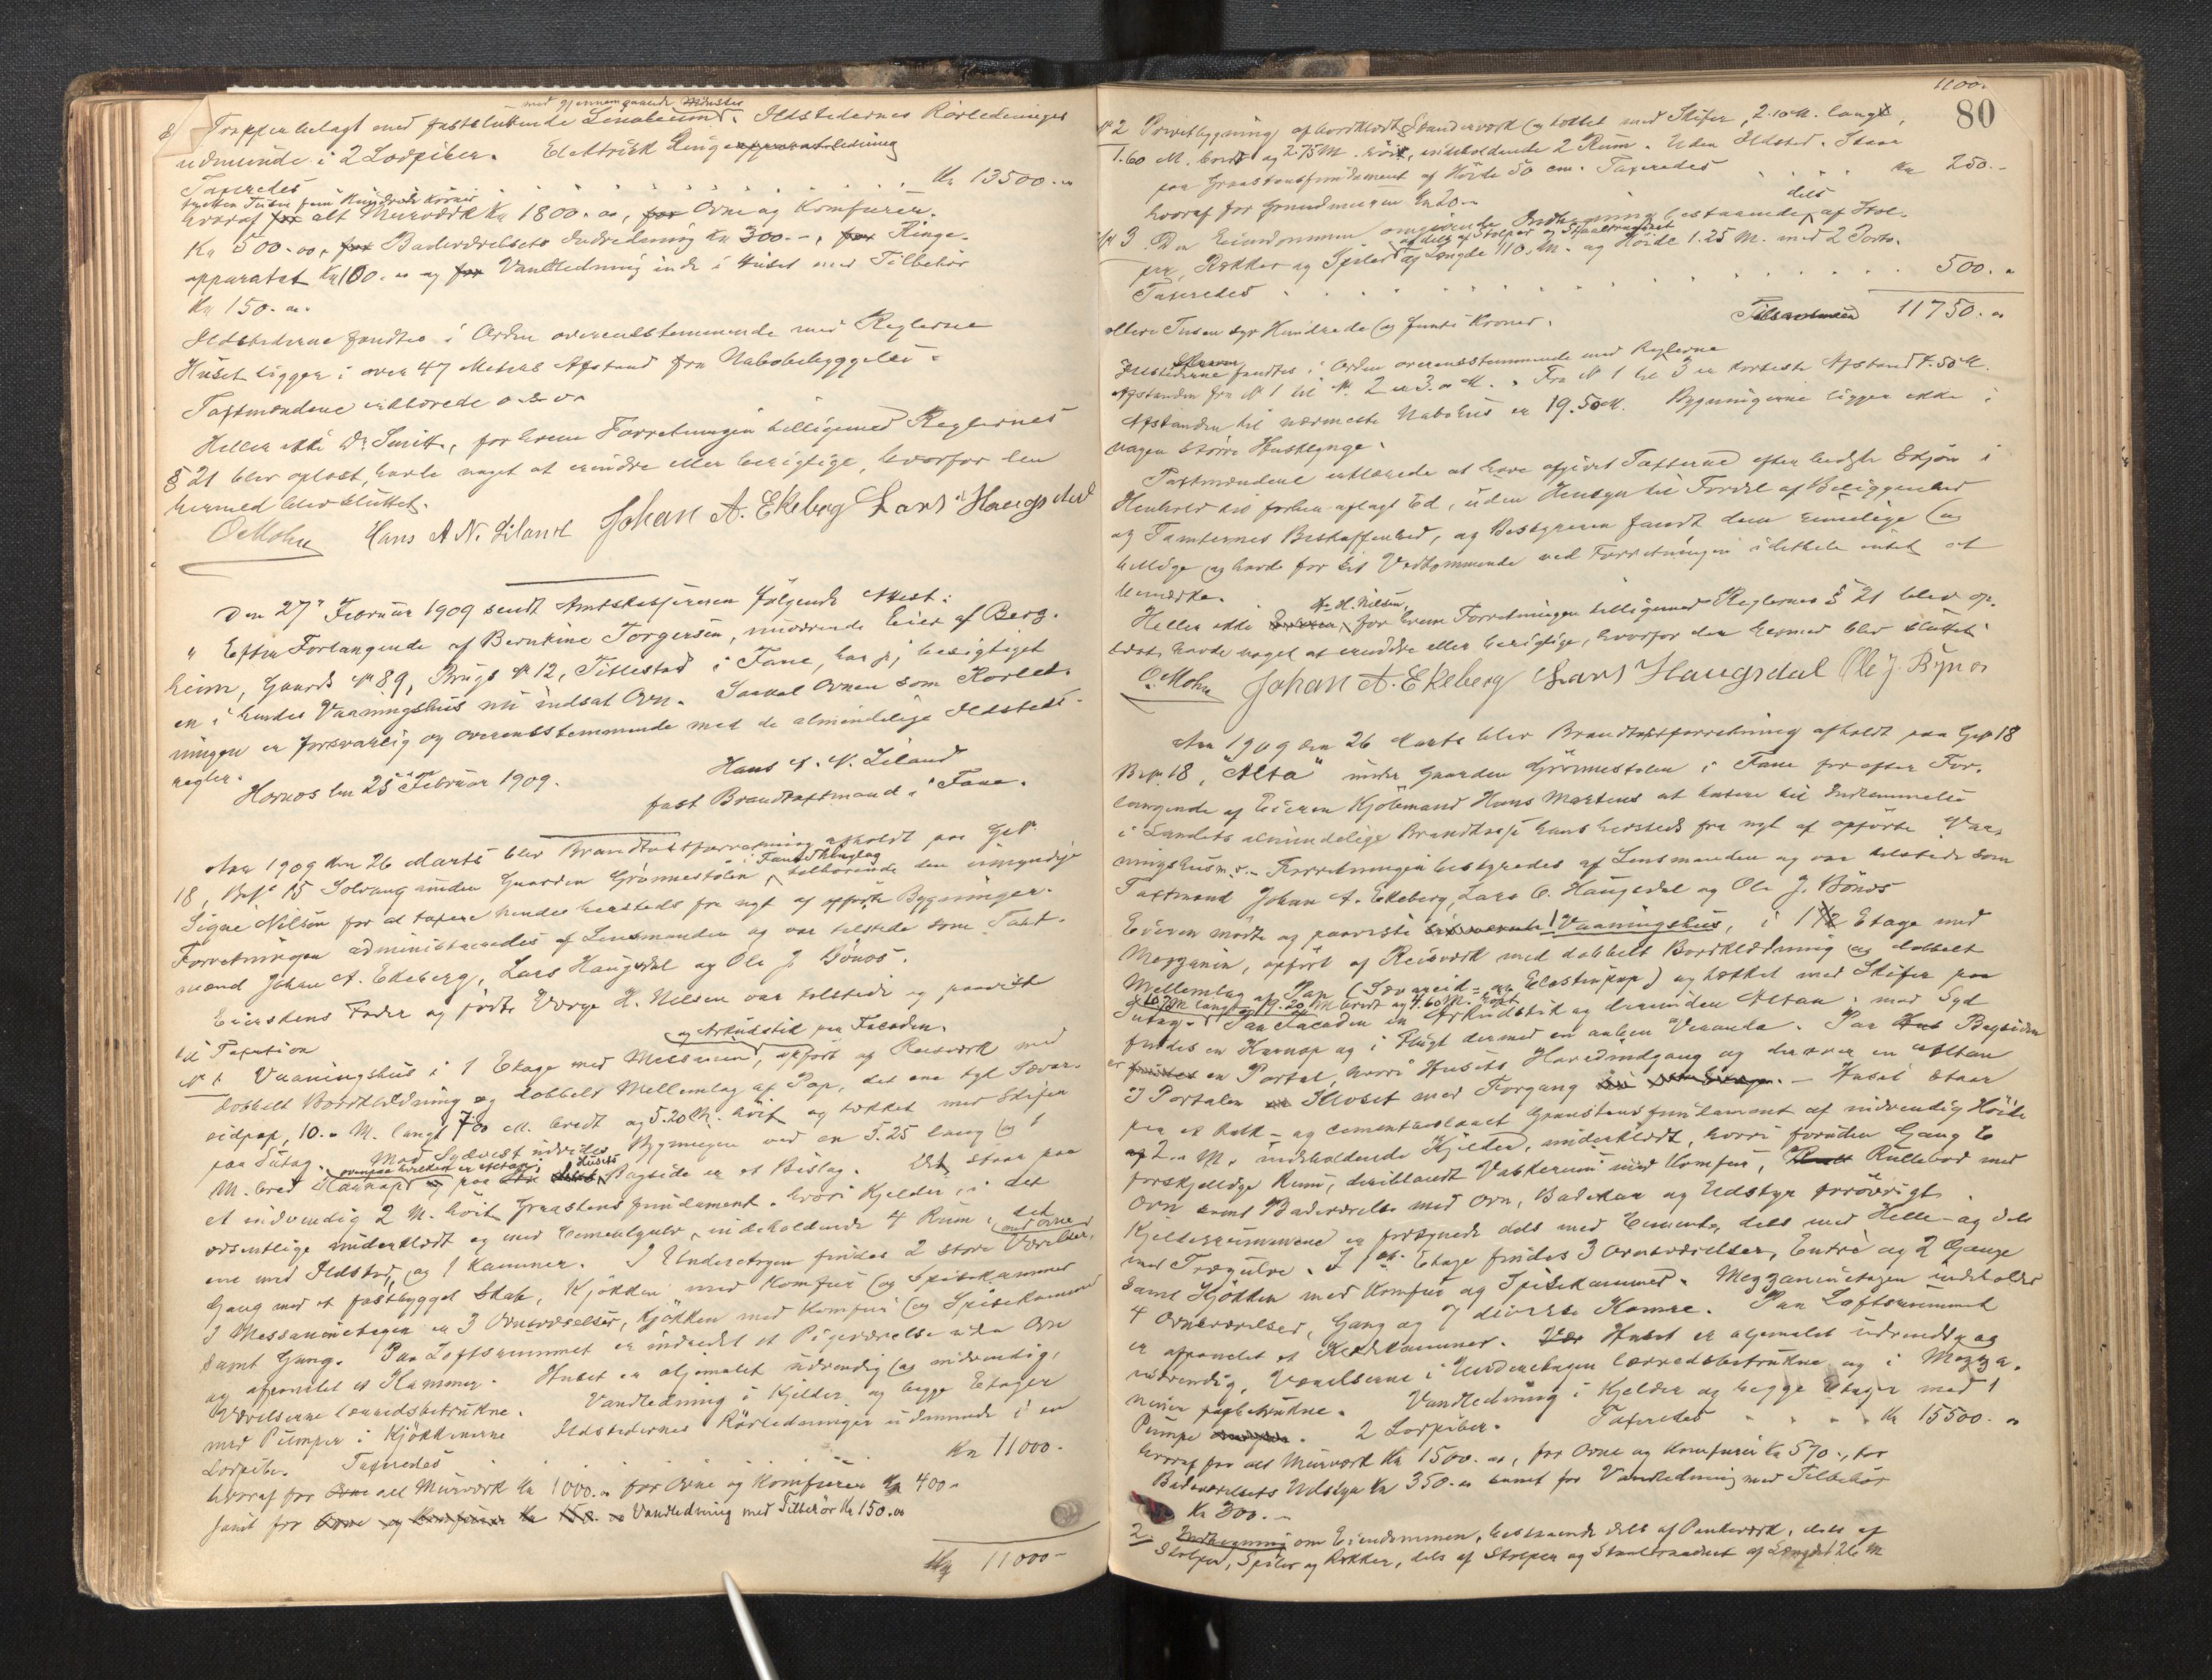 med gjennemgaaende Mønster
Trapperbelagt med fastsluttende Linoleum. Ildstedernes Rørledninger
udmunde i 2 Lodpiber. Elektrisk Ringeapparatledning
Taxeredes Kr 13500.00
tretten Tusen fem Hundrede Kroner
hvoraf for alt Murværk Kr 1800.00, for Ovne og Komfurer
Kr 500.00, for Badeværelsets Indredning Kr 300.–, for Ringe-
apparatet Kr 100.00 og for Vandledning inde i Huset med Tilbehør
Kr 150.00.
Ildstederne fandtes i Orden overensstemmende med Reglerne
Huset ligger i over 47 Meters Afstand fra Nabobebyggelse.
Taxtmændene erklærede o.s.v.
Heller ikke Dr Smitt, for hvem Forretningen tilligemed Reglernes
§ 21 blev oplæst, havde noget at erindre eller berigtige, hvorfor den
hermed blev sluttet.
O Mohn Hans A N. Liland Johan A. Ekeberg Lars Haugsdal
Den 27de Februar 1909 sendt Amtskassereren følgende Attest:
"Efter Forlangende af Berntine Torgersen, nuværende Eier af Berg-
heim, Gaards No 89, Brugs No 12, Tillestad i Fane, har jeg besigtiget
en i hendes Vaaningshus nu indsat Ovn. Saavel Ovnen som Rørled-
ningen er forsvarlig og overensstemmende med de almindelige Ildsteds-
regler.
Hornæs den 25de Februar 1909.
Hans A. N. Liland
fast Brandtaxtmand i Fane.
Aar 1909 den 26 Marts blev Brandtaxtforretning afholdt paa G.No
18, B.No 15 Solvang under Gaarden Grønnestølen i Fane Thinglag tilhørende den umyndige
Signe Nilsen for at taxere hendes hersteds fra nyt af opførte Bygninger.
Forretningen administreredes af Lensmanden og var tilstede som Taxt-
mænd Johan A. Ekeberg, Lars Haugsdal og Ole J. Bønæs.
Eierskens Fader og fødte Værge H. Nilsen var tilstede og paaviste
til Taxation
og Arkudstik paa Facaden.
No 1. Vaaningshus i 1 Etage med Messanin, opført af Reisværk med
dobbelt Bordklædning og dobbelt Mellemlag af Pap, det ene Lyt Sævar-
eidpap, 10.00 M. langt 7.00 M. bredt og 5.20 M. høit og tækket med Skifer
paa Sutag. Mod Sydvest udvides Bygningen ved en 5.25 lang og 1
M. bred Karnap ovenpaa hvilken er Altan, og paa Husets Bagside er et Bislag. Det staar paa
et indvendig 2 M. høit Graastensfundament, hvori Kjelder, i det
væsentlige underklædt og med Cementgulv, indeholdende 4 Rum, det
ene med Ildsted, og 1 Kammer. I Underetagen findes 2 store Værelser, med Ovne
Gang med et fastbygget Skab, Kjøkken med Komfur og Spisekammer
I Messaninetagen er 3 Ovnsværelser, Kjøkken med Komfur og Spisekammer
samt Gang. Paa Loftsrummet er indredet et Pigeværelse uden Ovn
og afpanelet et Kammer. Huset er oljemalet udvendig og indvendig,
Værelserne lærredsbetrukne. Vandledning i Kjelder og begge Etager
med Pumper i Kjøkkenerne Ildstedernes Rørledninger udmunde i en
Lodpibe. Taxeredes Kr 11000.
hvoraf for Ovne alt Murværk Kr 1000.00 for Ovne og Komfurer Kr 400.
samt for Ovne og Komfurer Kr 150.00 Vandledning med Tilbehør Kr 150.00
Kr 11000–
11000.
80
No 2 Privetbygning af bordklædt Standerværk og tækket med Skifer, 2.10 M. langt,
1.60 M. bredt og 2.75 M. høit, indeholdende 2 Rum. Uden Ildsted. Staar
paa Graastensfundament af Høide 50 cm. Taxeredes Kr 250.–
hvoraf for Grundmuren Kr 20.–
No 3 Den Eiendommen omgivende Indhegning bestaaende dels af Stol-
per, Rækker og Spiler og dels af Stolper og Staaltraadnet af Længde 110. M. og Høide 1.25 M. med 2 Porte.
Taxeredes 500.00
elleve Tusen syv Hundrede og femti Kroner. Tilsammen 11750.00
Ildstederne fandtes i Orden overensstemmende med Reglerne
Afstanden fra No 1 til No. 2 er 3.00 M. Fra No 1 til 3 er korteste Afstand 4.50 M.
Afstanden til nærmeste Nabohus er 19.50 M. Bygningerne ligger ikke i
nogen større Husklynge.
Taxtmændene erklærede at have afgivet Taxterne efter bedste Skjøn i
Henhold til forhen aflagt Ed, uden Hensyn til Fordel af Beliggenhed
og Tomternes Beskaffenhed, og Bestyreren fandt dem rimelige og
billige og havde for sit Vedkommende ved Forretningen idethele intet at
bemærke.
Heller ikke Hr H. Nilsen, for hvem Forretningen tilligemed Reglernes § 21 blev op-
læst, havde noget at erindre eller berigtige, hvorfor den hermed blev sluttet.
O. Mohn Johan A. Ekeberg Lars Haugsdal Ole J. Bønæs
Aar 1909 den 26 Marts blev Brandtaxtforretning afholdt paa G.No 18
B.No 18, "Alta" under Gaarden Grønnestølen i Fane for efter For-
langende af Eieren Kjøbmand Hans Martens at taxere til Indlemmelse
i Landets almindelige Brandkasse hans hersteds fra nyt af opførte Vaa-
ningshus m.v. Forretningen bestyredes af Lensmanden og var tilstede som
Taxtmænd Johan A. Ekeberg, Lars O. Haugsdal og Ole J. Bønæs
Eieren mødte og paaviste 1 Vaaningshus, i 1 1/2 Etage med
Mezzanin, opført af Reisværk med dobbelt Bordklædning og dobbelt
Mellemlag af Pap (Sævareid- og Elastinpap) og tækket med Skifer paa
Sutag. langt, 9.20 M bredt og 4.60 M. høit. Paa Facaden en Arkudstik og derunder Altan. mod Syd
findes en Karnap og i Flugt dermed en aaben Veranda. Paa Hus Bagsiden
er findes en Portal, hvori Husets Hovedindgang og derover en Altan
I Portalen er Kloset med Forgang. – Huset staar
paa et Kalk- og Cementmuret Graastensfundament af indvendig Høide
af 2.00 M. indeholdende Kjelder, underklædt, hvori foruden Gang 6
forskjellige Rum, deriblandt Vaskerum med Komfur, Rullebod med
Ovn samt Badeværelse med Ovn, Badekar og Udstyr forøvrigt.
Kjelderrummene er forsynede dels med Cement, dels med Helle- og dels
med Trægulve. I 1ste Etage findes 3 Ovnsværelser, Entré og 2 Gange
samt Kjøkken med Komfur og Spisekammer. Mezzaninetagen indeholder
4 Ovnsværelser, Gang og 7 diverse Kamre. Paa Loftsrummet
er afpanelet et Klædekammer. Huset er oljemalet udvendig og
indvendig, Værelserne i Underetagen lærredsbetrukne og i Mezza-
ninen papbetrukne. Vandledning i Kjelder og begge Etager med 1
Pumpe. 2 Lodpiber. Taxeredes Kr 15500.00
hvoraf for alt Murværk Kr 1500.00, for Ovne og Komfurer Kr 570.–, for
Badeværelsets Udstyr Kr 350.00 samt for Vandledning med Tilbehør
Kr 300.–
2. Indhegning om Eiendommen, bestaaende dels af Pukkværk, dels af
Stolper, Spiler og Rækker, dels af Stolper og Staaltraadnet af Længde 216 M